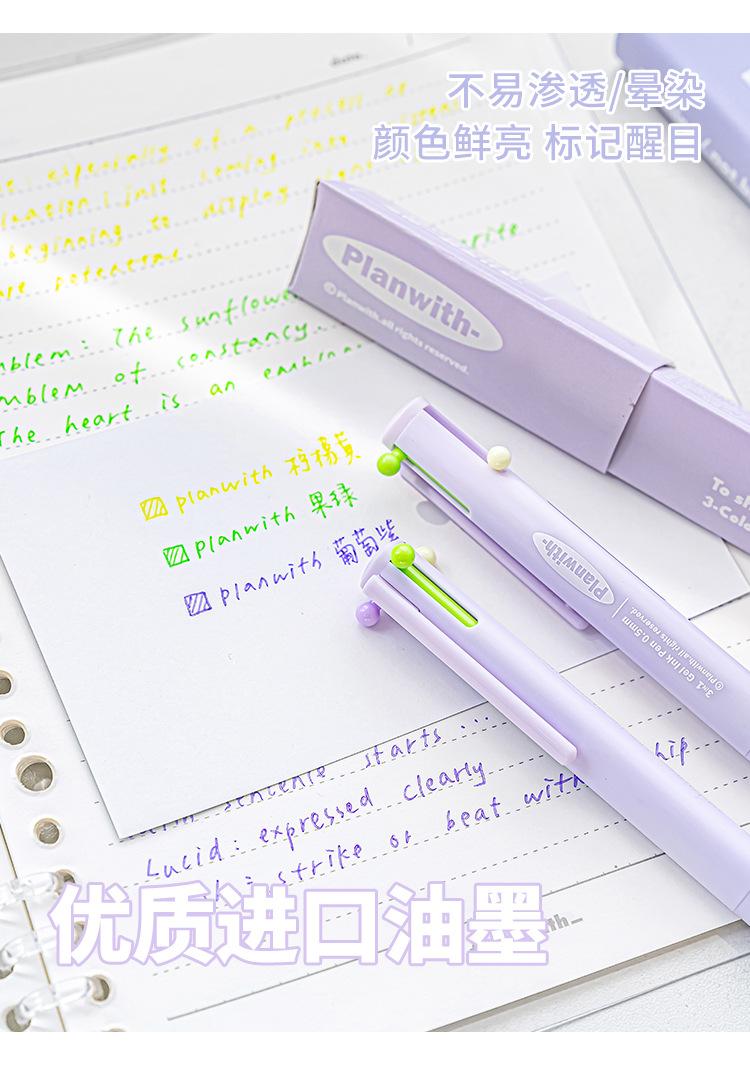 不易渗透/晕染
颜色鲜亮 标记醒目
date.
especially of a
i just coming into
beginning to display
potential
Planwith-
©Planwith.all rights reserved.
The sunflower
emblem of constancy.
The heart is an
To s
3-Colo
planwith 柠檬黄
planwith 果绿
planwith 葡萄紫
Planwith-
3in1 Gel Ink Pen 0.5mm
©Planwith.all rights reserved.
sentence starts ...
Lucid: expressed clearly
strike or beat with
优质进口油墨